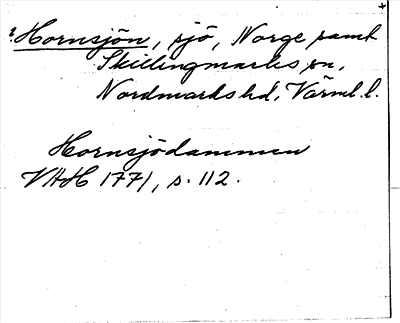 Hornsjön, sjö, Norge samt
Skillingmarks sn,
Nordmarks hd, Värml. l.
Hornsjödammen
VAH 1771, s. 112.